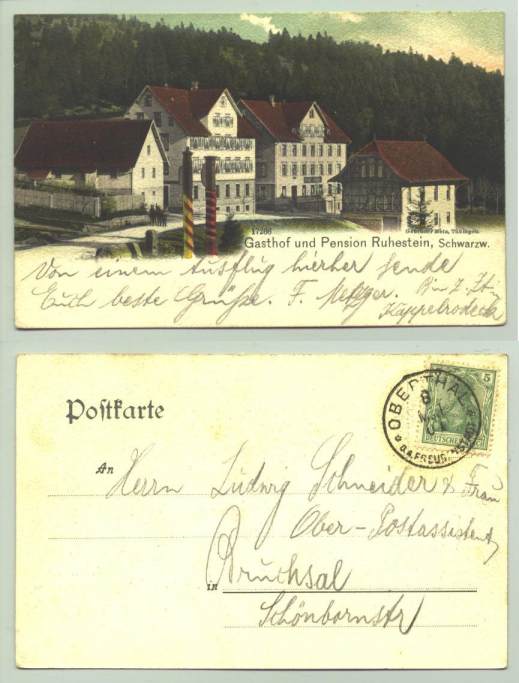 17266
Gebrüder Metz, Tübingen.
Gasthof und Pension Ruhestein, Schwarzw.
Von einem Ausflug hierher sende
Euch beste Grüße. F. Metzger. Bin z. Zt.
Kappelrodeck
Postkarte
OBERTHAL
8
O.A. FREUDENSTADT
5
DEUTSCHES
An
Herrn Ludwig Schneider & Frau
Ober-Postassistent,
in Bruchsal
Schönbornstr